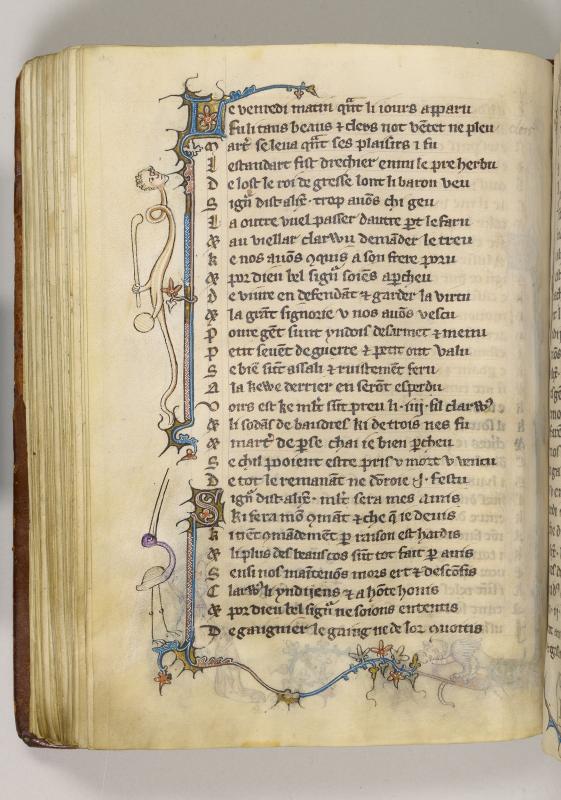 Le venredi matin qñt li iours apparu
Fu li tans beaus ⁊ clers not vẽtet ne pleu
ſe leua qñt ses plaisirs i fu
L estandart fist drechier enmi le pre herbu
D e lost le roi de gresse lont li baron veu
S igñ dist alix̃ · trop auõs chi geu
L a outre vuel passer dautre p̱t le faru
⁊ au viellar clarvvu demãder le treu
K e nos auõs 9quis a son frere poru
⁊ por dieu bel sigñ soiẽs ap̱cheu
D e viure en defendãt ⁊ garder la virtu
⁊ la grãt signorie v nos auõs vescu
P oure gẽt sunt yndois desarmet ⁊ menu
P etit seuẽt de guerre ⁊ petit ont valu
S e biẽ sũt assali ⁊ ruistemẽt feru
A la kewe derrier en serõt esperdu
V oirs est ke ml't sũt preu li · iiij · fil clarvv᷒
⁊ li sodãs de baudres ki de trois nes fu
⁊ marť de p̱se chai ie bien p̱cheu
S e chil pooient estre pris v mort v vencu
D e tot le remanãt ne dõroie · j · festu
Sign̄ dist alix̃ · ml't sera mes amis
Ki fera mõ 9mãt ⁊ che q̃ ie deuis
K i tiẽt 9mãdemẽt p̱ raison est hardis
⁊ li plus des beaus cos sũt tot fait p̱ auis
S ensi nos maĩtenõs mors ert ⁊ desconfis
C larvv᷒ li yndijens ⁊ a hõte honis
⁊ por dieu bel sigñ ne soions ententis
D e gaaignier le gaaing ne de lor 9querre